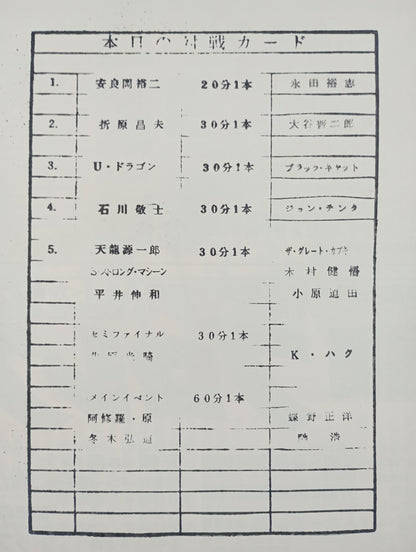 本日の対戦カード
1. 安良岡裕二 20分1本 永田裕志
2. 折原昌夫 30分1本 大谷晋二郎
3. U・ドラゴン 30分1本 ブラック・キャット
4. 石川敬士 30分1本 ジョン・テンタ
5. 天龍源一郎 30分1本 ザ・グレート・カブキ
S・ストロング・マシーン 木村健悟
平井伸和 小原道由
セミファイナル 30分1本
K・ハク
メインイベント 60分1本
阿修羅・原 蝶野正洋
冬木弘道